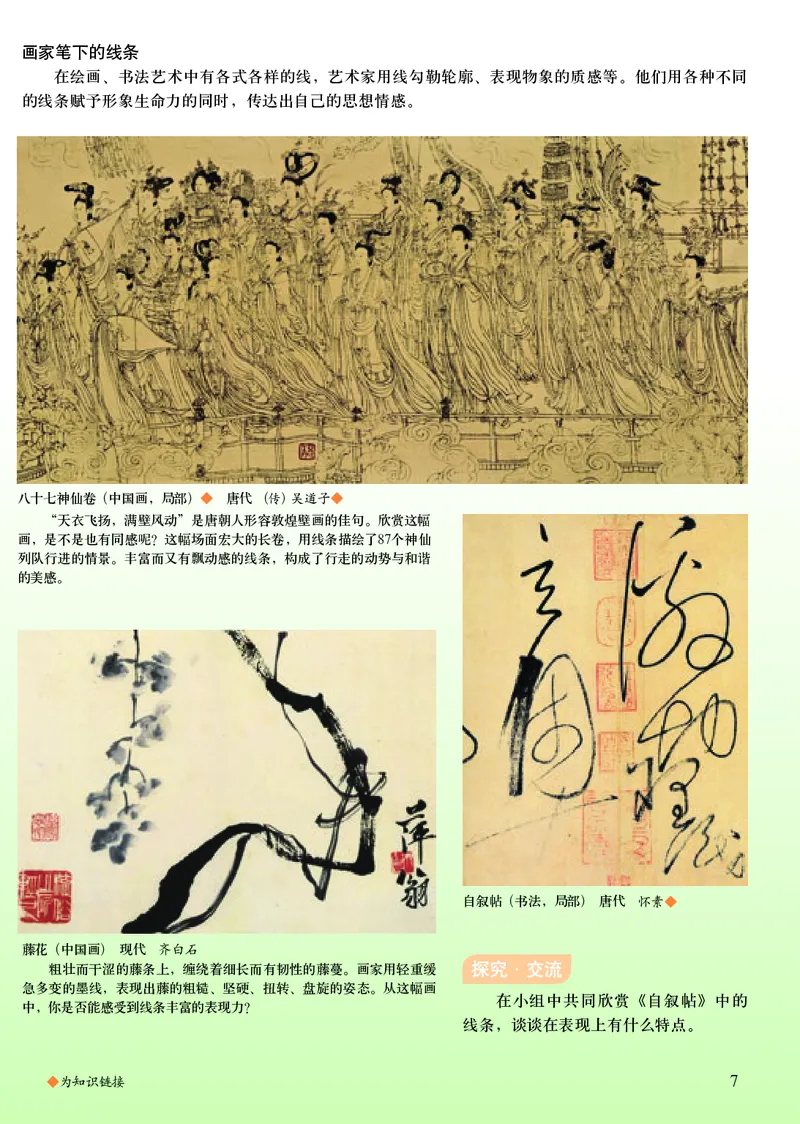 画家笔下的线条
在绘画、书法艺术中有各式各样的线，艺术家用线勾勒轮廓、表现物象的质感等。他们用各种不同
的线条赋予形象生命力的同时，传达出自己的思想情感。
八十七神仙卷（中国画，局部）◆ 唐代 （传）吴道子◆
“天衣飞扬，满壁风动”是唐朝人形容敦煌壁画的佳句。欣赏这幅
画，是不是也有同感呢？这幅场面宏大的长卷，用线条描绘了87个神仙
列队行进的情景。丰富而又有飘动感的线条，构成了行走的动势与和谐
的美感。
萍翁
藤花（中国画） 现代 齐白石
粗壮而干涩的藤条上，缠绕着细长而有韧性的藤蔓。画家用轻重缓
急多变的墨线，表现出藤的粗糙、坚硬、扭转、盘旋的姿态。从这幅画
中，你是否能感受到线条丰富的表现力？
自叙帖（书法，局部） 唐代 怀素◆
探究·交流
在小组中共同欣赏《自叙帖》中的
线条，谈谈在表现上有什么特点。
◆为知识链接
7